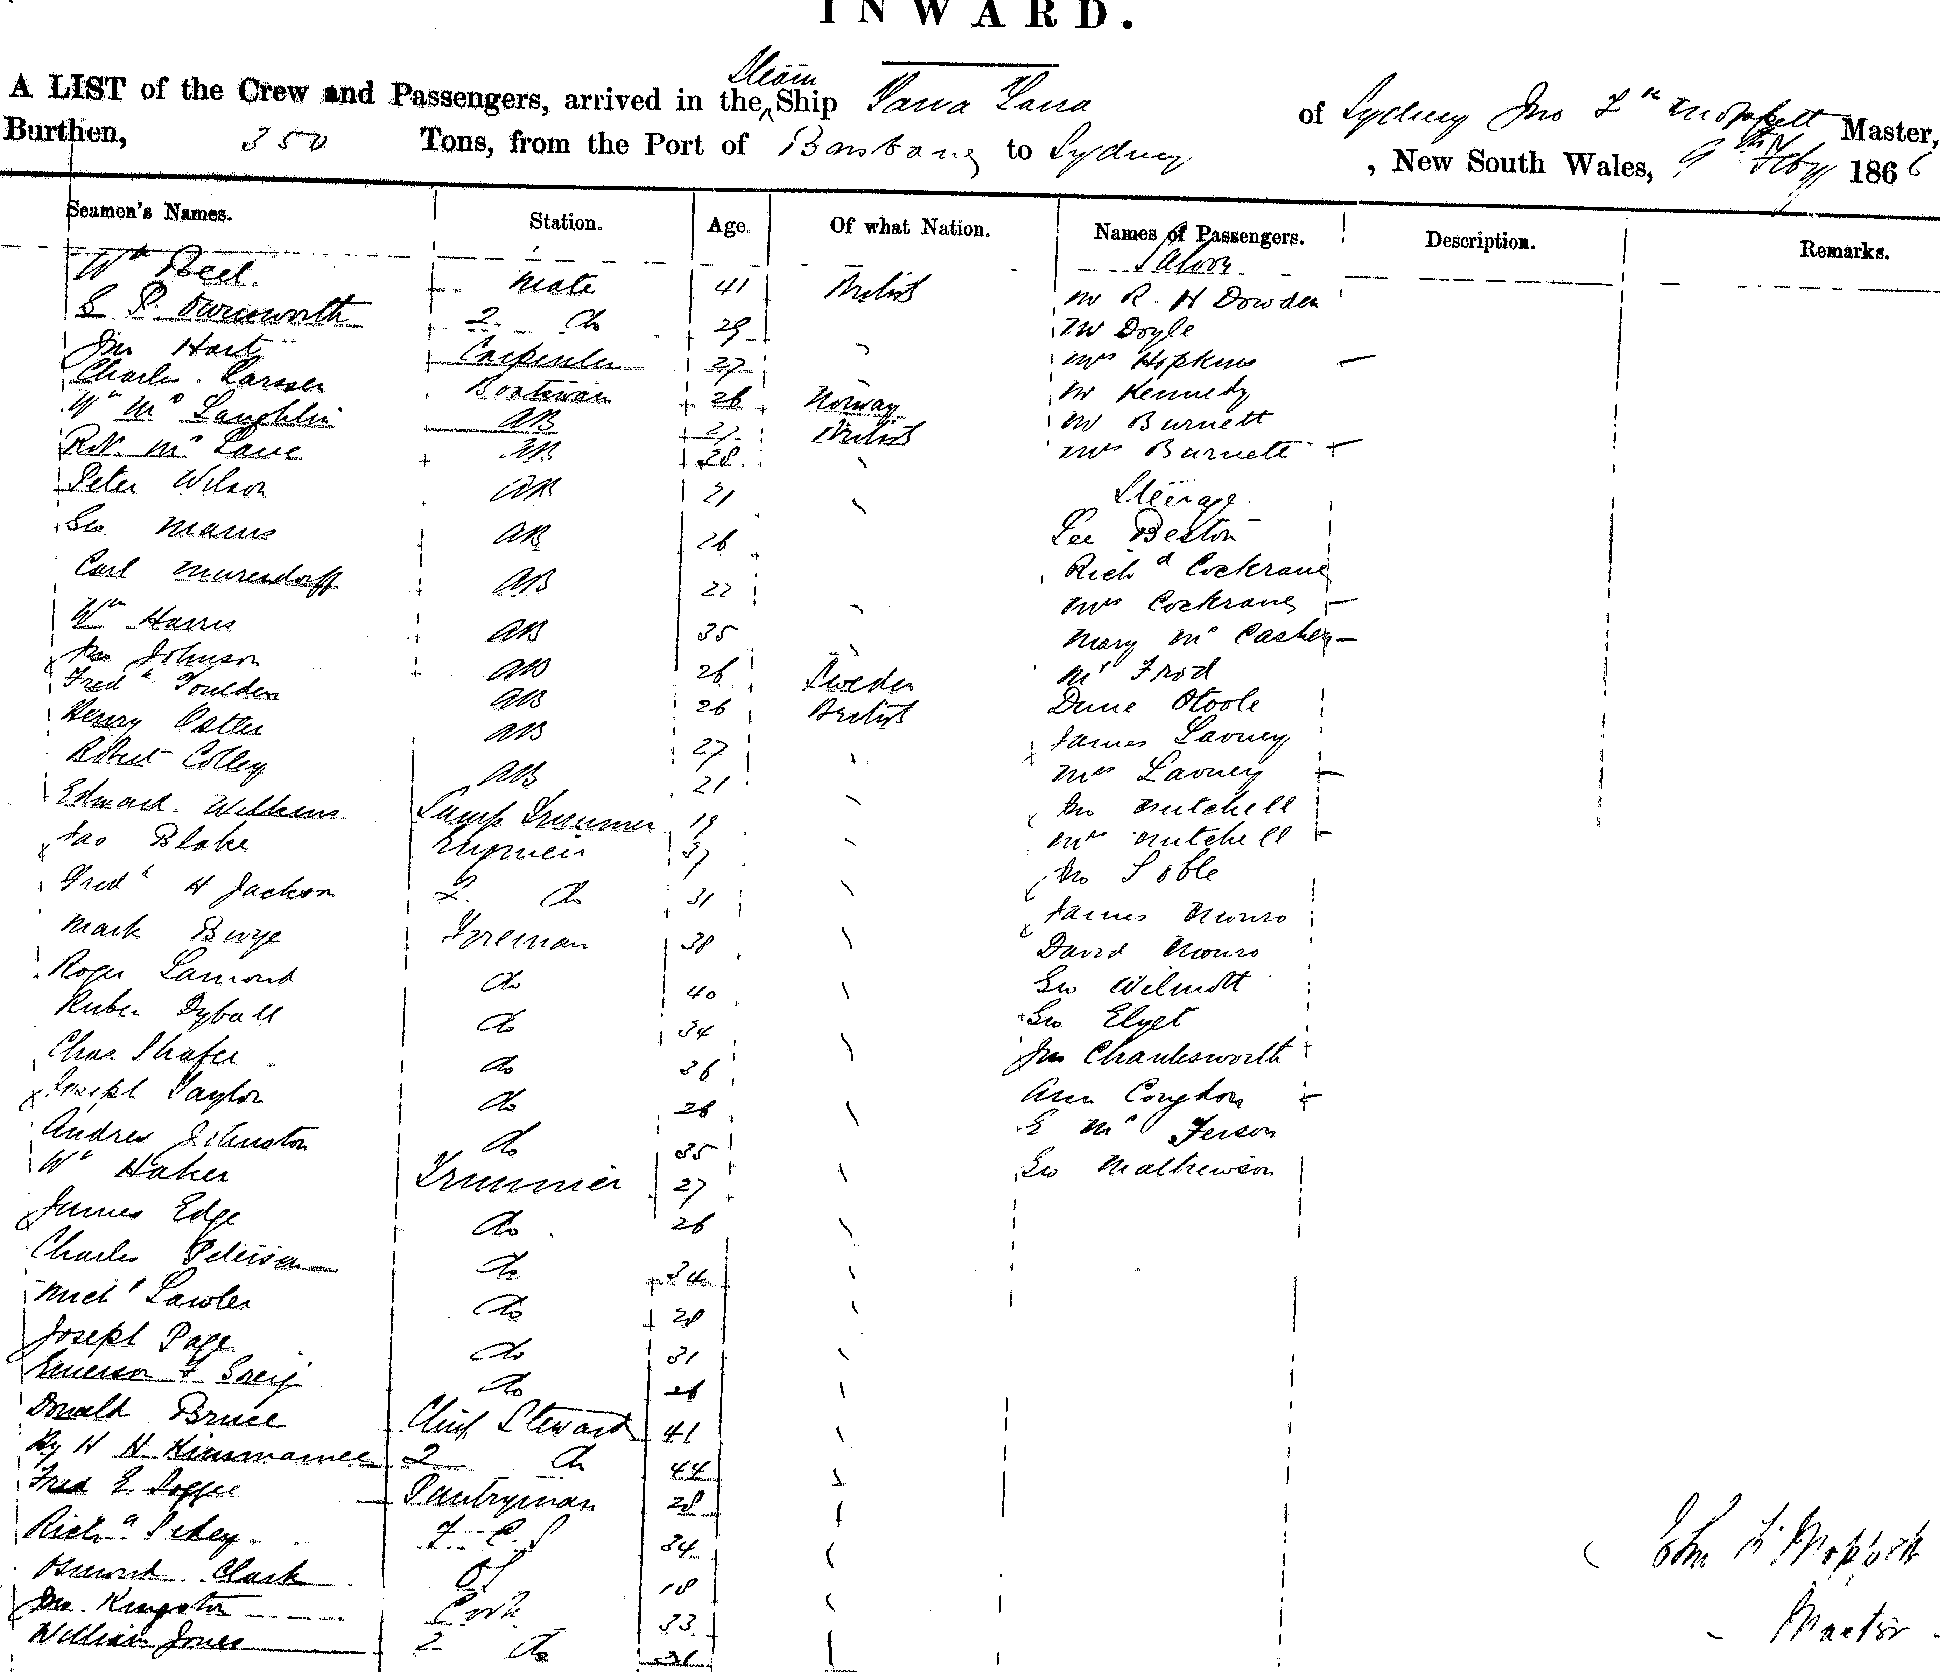 INWARD.
A LIST of the Crew and Passengers, arrived in the Steam Ship Yarra Yarra of Sydney Jno Master,
Burthen, 350 Tons, from the Port of Brisbane to Sydney, New South Wales, 9th Feby 1866
Seamen's Names. Station. Age. Of what Nation. Names of Passengers. Description. Remarks.
Saloon
Wm Mate 41 British Mr R. H Dowden
2 Do 29 Mr Doyle
Jno Hart Carpenter 27 " Mrs Hopkins —
Charles Larsen Boatswain 26 Norway Mr Kennedy
Wm McLaughlin AB 27 British Mr Burnett
Robt McLane AB 28 " Mrs Burnett
Peter Wilson AB 21 " Steerage
Geo AB 26 Beston
Carl AB 22 Richd Cockrane
Wm Harris AB 35 " Mrs Cockrane —
Jno Johnson AB 26 Sweden Mary McCaskey —
Fredk Moulden AB 26 British Mr
Henry Ostler AB 27 " Otoole
Robert Colley AB 21 " James Lavney
Edward Williams Lamp Trimmer 19 " Mrs Lavney
Jas Blake Engineer 37 " Jno Mitchell
Mrs Mitchell
Fredk H Jackson 2 Do 31 " Jno
Mark Bwye Foreman 38 " James Munro
Roger Lamont Do 40 " David Munro
Ruben Dyball Do 34 Geo Wilmott
Chas Shafer Do 36 " Geo
Joseph Taylor Do 26 " Jno Charlesworth
Andrew Johnston Do 35 Ann Congdon
Wm Trimmer 27 " E McFerson
James Edge Do 26 " Geo Mathewson
Charles Peterson Do 34 "
Michl Lawler Do 28 "
Joseph Page Do 31 "
Emerson Do 26 "
Donald Bruce Chief Steward 41 "
Hy H 2 Do 44 "
Fred E Pantryman 28 "
Richd F.C.S 34 "
Clark 18 "
Jno Kingston Cook 33 "
William Jones 2 Do
John
Master